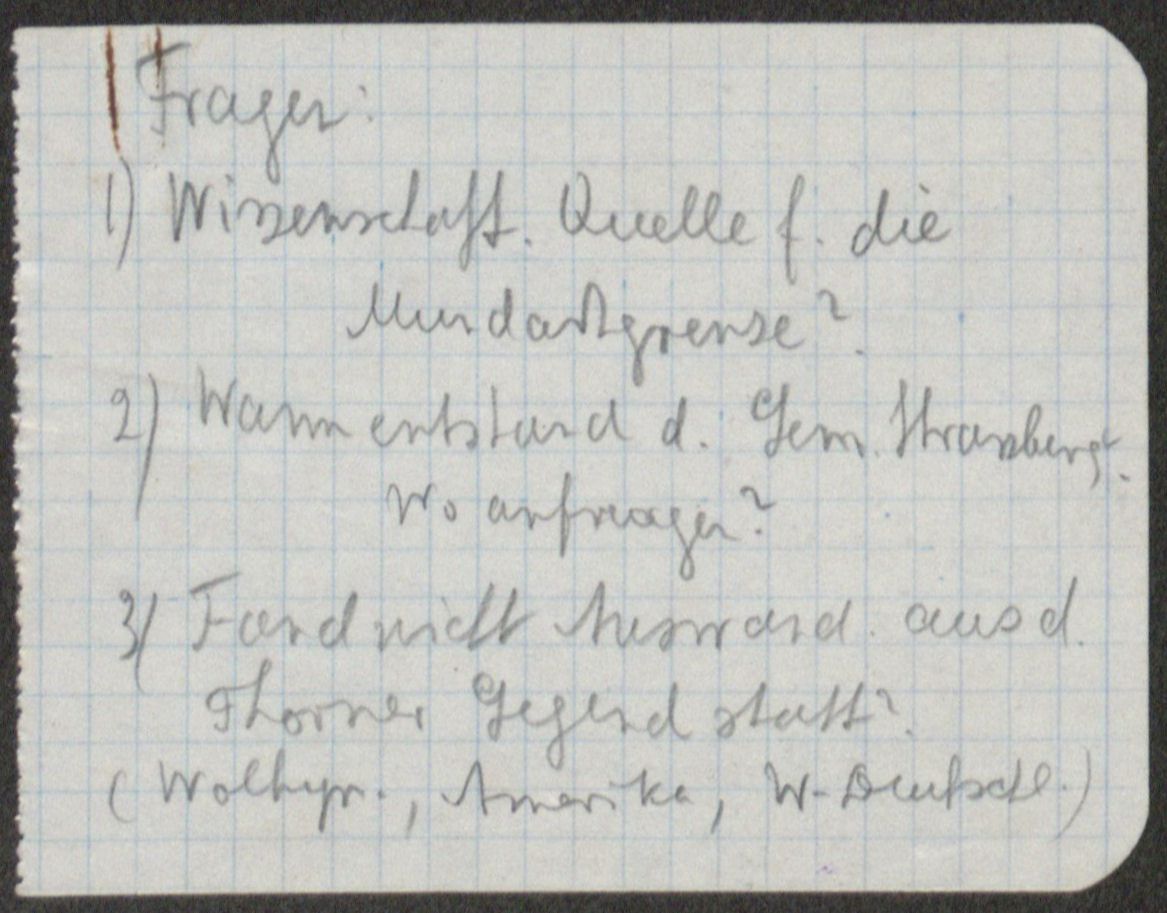 Fragen:
1) Wissenschaftl. Quelle f. die
Mundartgrenze?
2) Wann entstand d. Gem. Strassberg?
Wo anfragen?
3) Fand nicht Auswand. aus d.
Thorner Gegend statt?
(Wolhyn., Amerika, W-Deutschl.)